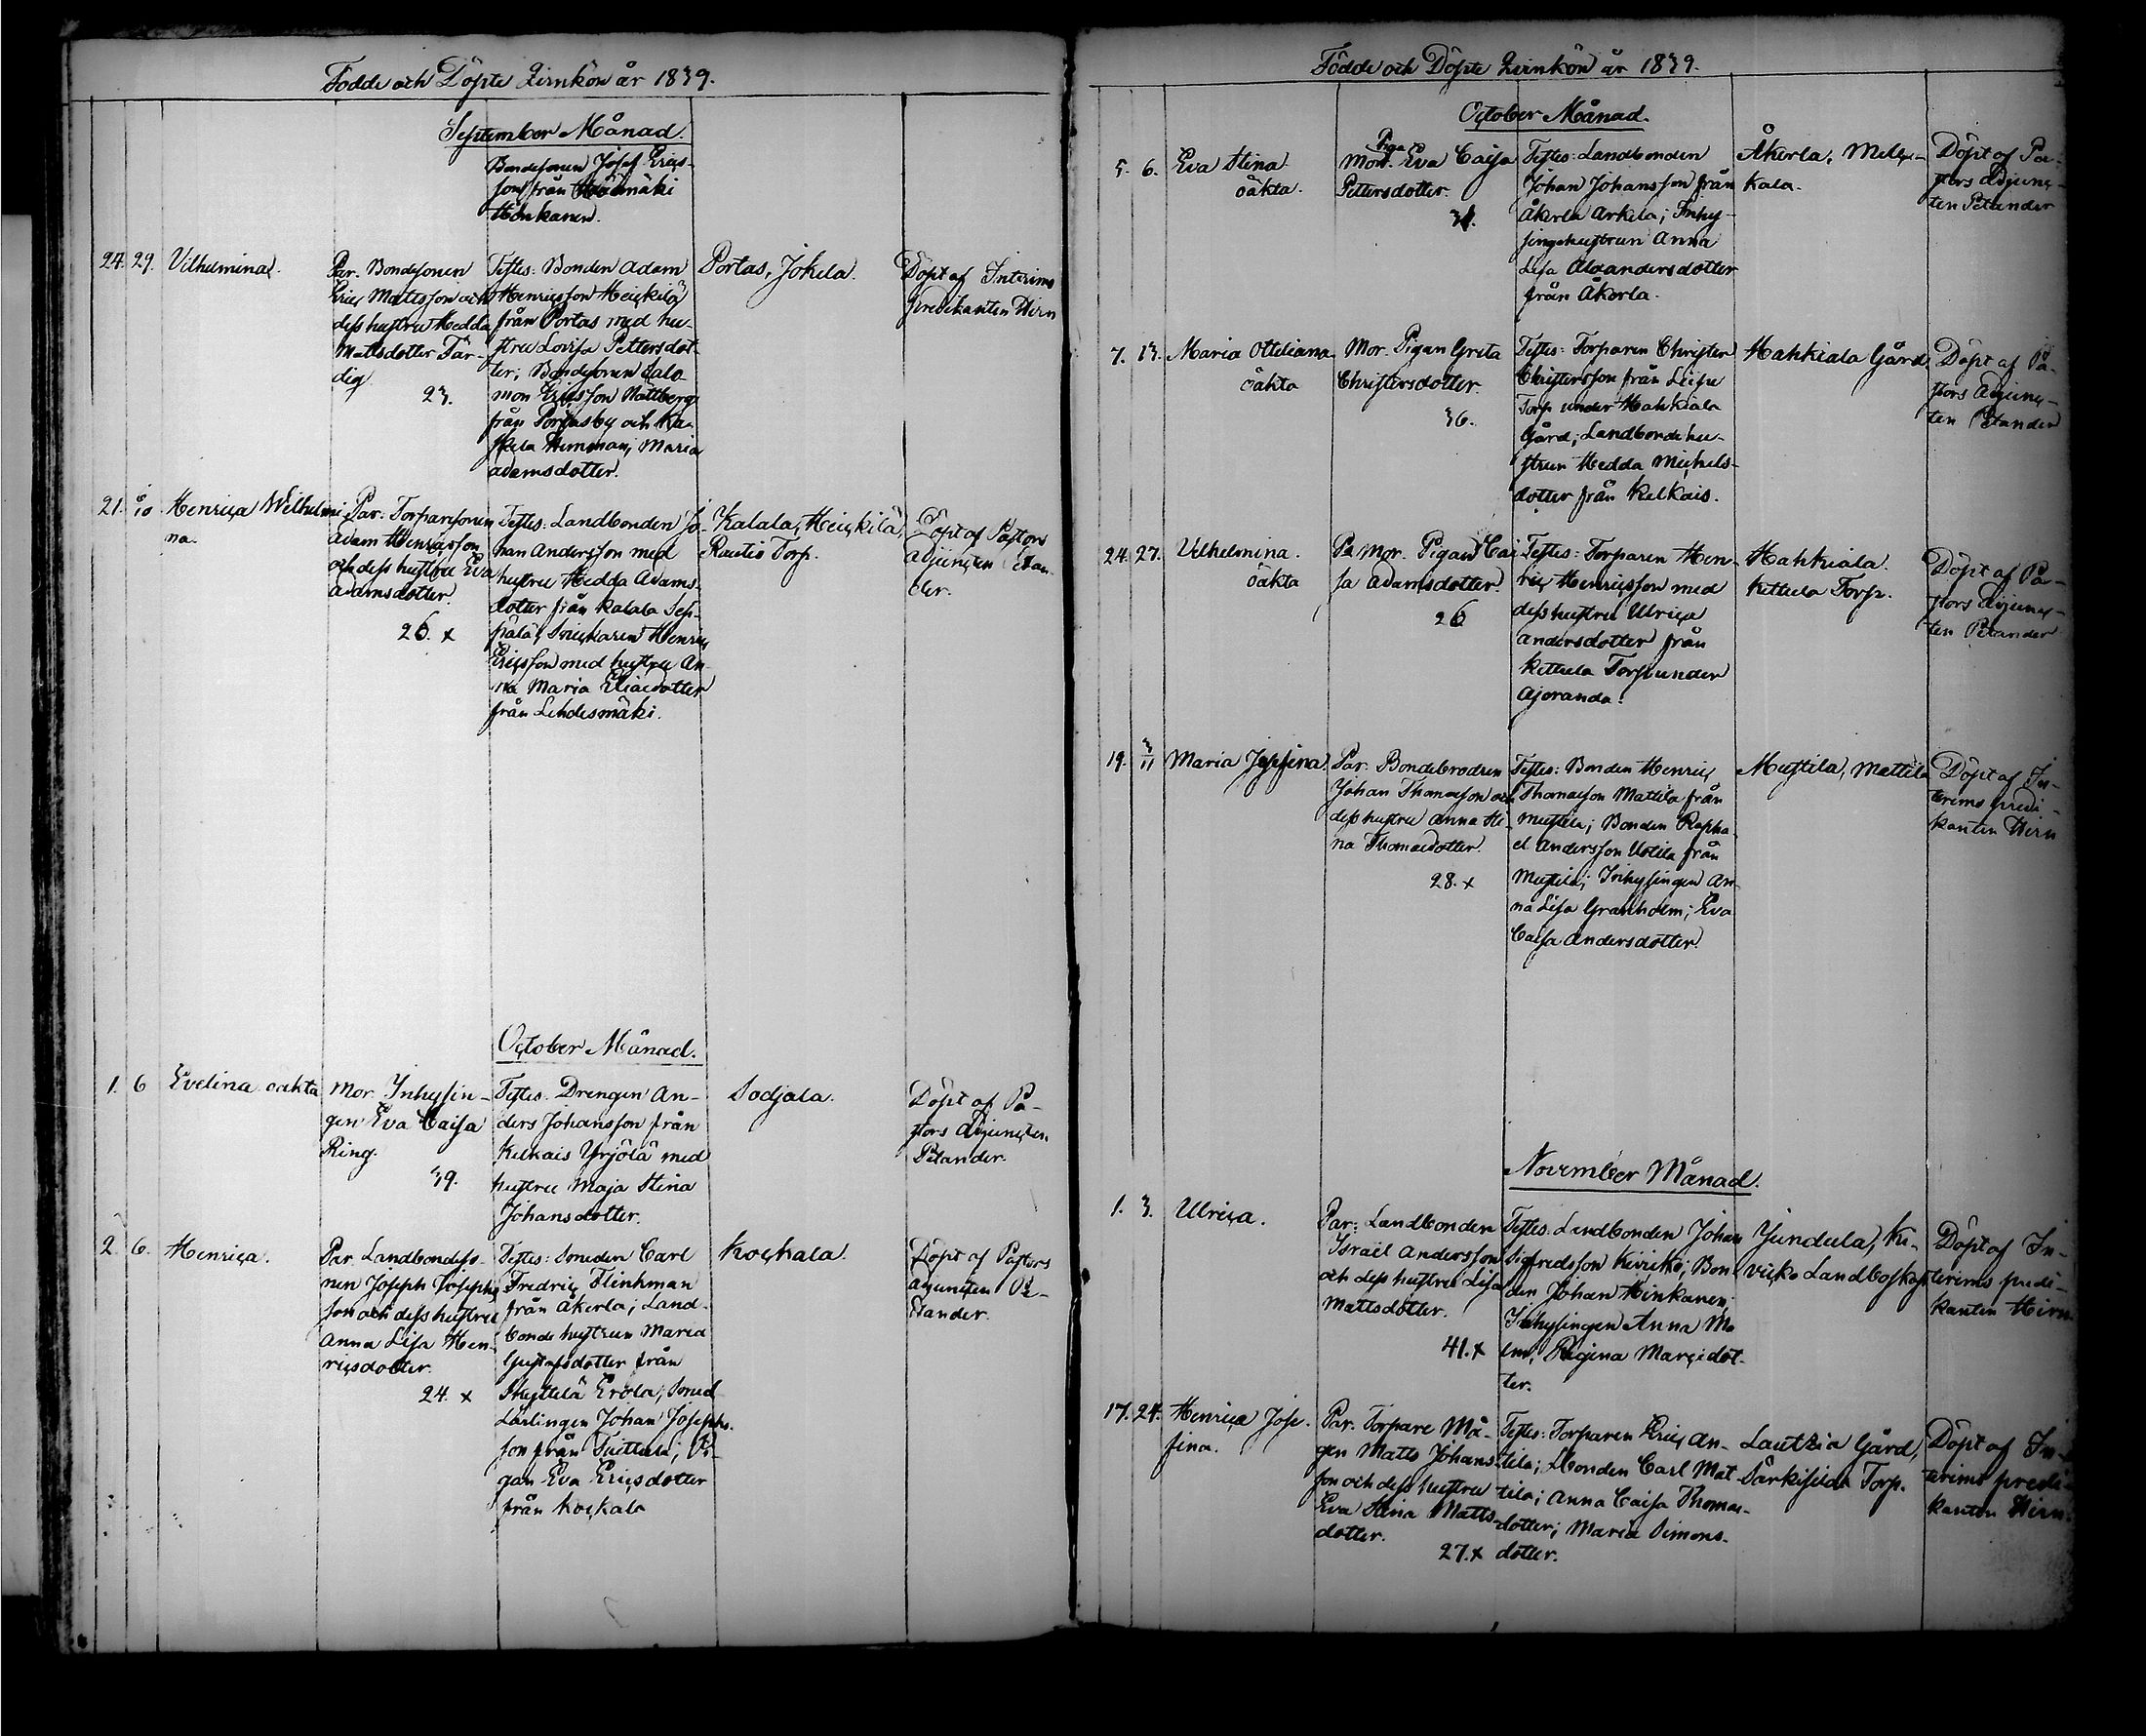 Födde och Döpte Qvinkön år 1839.
September Månad.
Bondesonen Josef Erics-
son från
Hinkanen.
24. 29. Vilhelmina.
Par. Bondesonen
Eric Mattsson och
dess hustru Hedda
Mattsdotter Fär-
dig
23.
Testes: Bonden Adam
Henricsson Heickilä
från Portas med hu-
stru Lovisa Pettersdot-
ter; Bondesonen Salo-
mon Ericsson Mattberg
från Portasby och
Hemman; Maria
Adamsdotter.
Portas, Jokela.
Döpt af Interims
predikanten Hirn
21. 6/10 Henrica Wilhelmi-
na.
Par. Torparesonen
Adam Henricsson
och dess hustru Eva
Adamsdotter.
26. x
Testes: Landbonden Jo-
han Andersson med
hustru Hedda Adams-
dotter från Kalala Sep-
pälä; Snickaren Henric
Ericsson med hustru An-
na Maria Eliaedotter
från Lehdesmäki.
Kalala, Heickilä,
Rautio Torp.
Döpt af Pastors
Adjuncten Petan-
der.
October Månad.
1. 6 Evelina oäkta
Mor. Inhysin-
gen Eva Caisa
Ring.
39.
Testes. Drengen An-
ders Johansson från
Kelkais Yrjölä med
hustru Maja Stina
Johansdotter.
Sodjala.
Döpt af Pa-
stors Adjuncten
Petander.
2. 6. Henrica.
Par. Landbondeso-
nen Joseph Josephs-
son och dess hustru
Anna Lisa Hen-
ricsdotter.
24. x
Testes: Smeden Carl
Fredric Flinkman
från Åkerla; Land-
bonde hustrun Maria
Gustafsdotter från
Skyttelä Erola; Smed
Lärlingen Johan Josephs-
son från Tuittula; Pi-
gan Eva Ericsdotter
från Kockala
Kockala.
Döpt af Pastors
Adjuncten Pe-
tander.
Födde och Döpte Qvinkön år 1839.
October Månad.
5. 6. Eva Stina
oäkta.
Piga
Mor. Eva Caisa
Pettersdotter.
31.
Testes: Landbonden
Johan Johansson från
Åkerla Arkila; Inhy-
singehustrun Anna
Lisa Alexandersdotter
från Åkerla.
Åkerla, Melc-
kala.
Döpt af Pa-
stors Adjunc-
ten Petander
7. 13. Maria Otteliana
oäkta
Mor. Pigan Greta
Christersdotter.
36.
Testes: Torparen Christer
Christersson från Leisu
Torp under Hahkiala
Gård; Landbonde hu-
strun Hedda Michels-
dotter från Kelkais.
Hahkiala Gård.
Döpt af Pa-
stors Adjunc-
ten Petander
24. 27. Vilhelmina.
oäkta
Mor. Pigan Cai-
sa Adamsdotter.
26
Testes: Torparen Hen-
ric Henricsson med
dess hustru Ulrica
Andersdotter från
Kettula Torp under
Ajoranda.
Hahkiala.
Kettula Torp.
Döpt af Pa-
stors Adjunc-
ten Petander
19. 3/11 Maria Josefina.
Par. Bondebrodren
Johan Thomasson och
dess hustru Anna He-
na Thomaedotter.
28. x
Testes: Bonden Henric
Thomasson Mattila från
Mustila; Bonden Rapha-
el Andersson Uotila från
Mustila; Inhysingen An-
na Lisa Granholm; Eva
Caisa Andersdotter.
Mustila, Mattila
Döpt af In-
terims predi-
kanten Hirn
November Månad.
1. 3. Ulrica.
Par. Landbonden
Israel Andersson
och dess hustru Lisa
Mattsdotter.
41. x
Testes. Landbonden Johan
Sigfredsson Kirriko; Bon-
den Johan Hinkanen;
Inhysingen Anna Ma-
lm; Regina Marcidot-
ter.
Jundula, Ki-
vicko Landboskap
Döpt af In-
terims predi-
kanten Hirn
17. 24. Henrica Jose-
fina.
Par. Torpare Må-
gen Matts Johans-
son och dess hustru
Eva Stina Matts-
dotter.
27. x
Testes: Torparen Eric An-
tila; Lbonden Carl Mat-
tila; Anna Caisa Thomae-
dotter; Maria Simons-
dotter.
Lautzia Gård,
Särkisilda Torp.
Döpt af In-
terims predi-
kanten Hirn